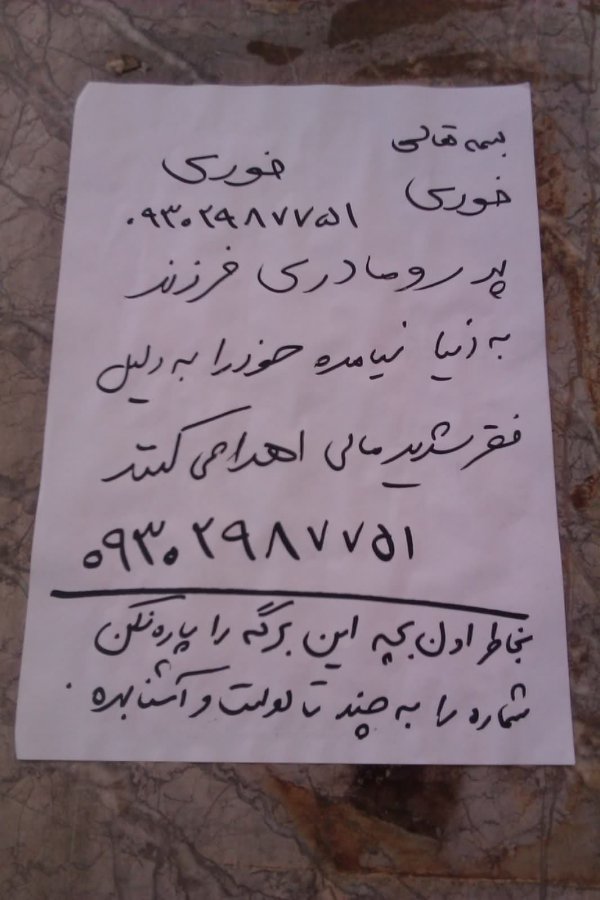 بسمه تعالی
فوری فوری
۰۹۳۰۲۹۸۷۷۵۱
پدر و مادری فرزند
به دنیا نیامده خود را به دلیل
فقر شدید مالی اهدا می کنند
۰۹۳۰۲۹۸۷۷۵۱
بخاطر اون بچه این برگه را پاره نکن
شماره را به چند تا دوست و آشنا بده .